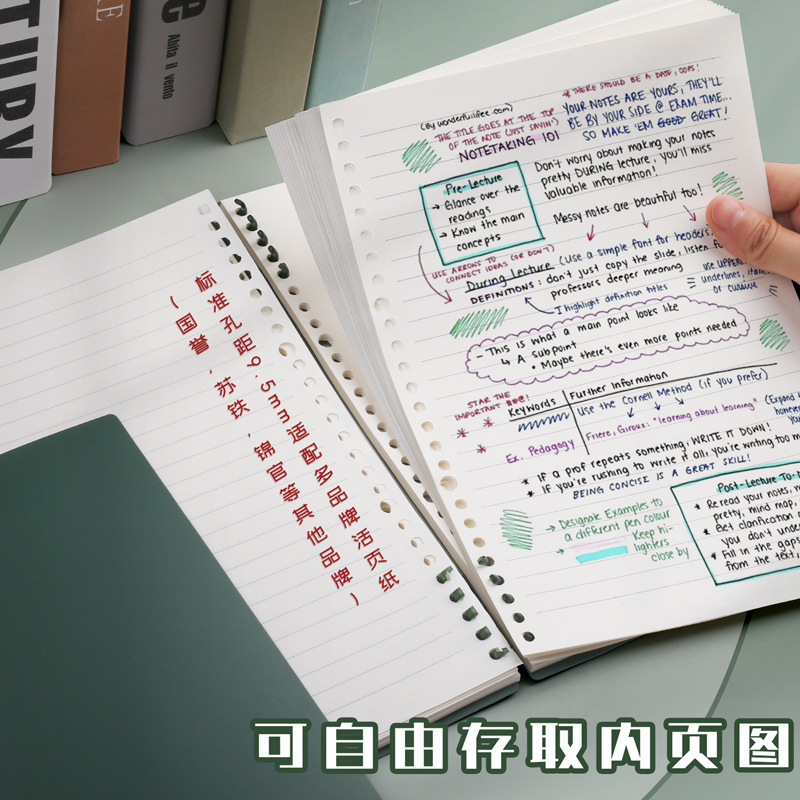 Abita il vento
标准孔距9.5mm适配多品牌活页纸
(国誉.苏铁.锦官等其他品牌)
(By wonderfullifee.com)
*THERE SHOULD BE A DATE, OOPS!
THE TITLE GOES AT THE TOP
OF THE NOTE (JUST SAYIN')
NOTETAKING 101
YOUR NOTES ARE YOURS, THEY'LL
BE BY YOUR SIDE @ EXAM TIME...
SO MAKE 'EM GOOD GREAT!
Pre-Lecture
→ Glance over the
readings
→ Know the main
concepts
Don't worry about making your notes
pretty DURING lecture, you'll miss
valuable information!
Messy notes are beautiful too!
USE ARROWS TO
CONNECT IDEAS (OR DON'T)
During Lecture (Use a simple font for headers,
DEFINITIONS: don't just copy the slide, listen for
professors deeper meaning
I highlight definition titles
use UPPER
underlines, italic
or cursive
- This is what a main point looks like
↳ A subpoint
• Maybe there's even more points needed
STAR THE
IMPORTANT
Keywords
Further Information
Use the Cornell Method (if you prefer)
Ex. Pedagogy
Friere, Giroux: "learning about learning"
(Expand
however
you
* If a prof repeats something, WRITE IT DOWN!
* If you're rushing to write it all, you're writing too m
BEING CONCISE IS A GREAT SKILL!
→ Designate Examples to
a different pen colour
→ Keep hi-
lighters
close by
Post-Lecture To-
* Reread your notes,
pretty, mind map,
* Get clarification
you don't under
* Fill in the gaps
from the text,
可自由存取内页图